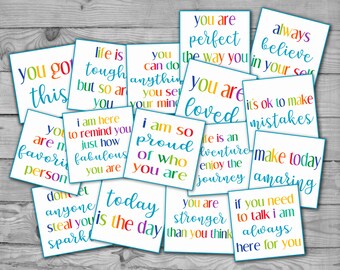 you got
this
life is
tough
but so are
you
you can
do
anything
you set
your mind
you are
perfect
the way you
always
believe
in your self
you
are my
favorite
person
i am here
to remind you
just how
fabulous
you are
i am so
proud
of who
you are
you are
loved
life is an
adventure
enjoy the
journey
it's ok to make
mistakes
make today
amazing
don't let
anyone
steal your
sparkle
today
is the day
you are
stronger
than you think
if you need
to talk i am
always
here for you